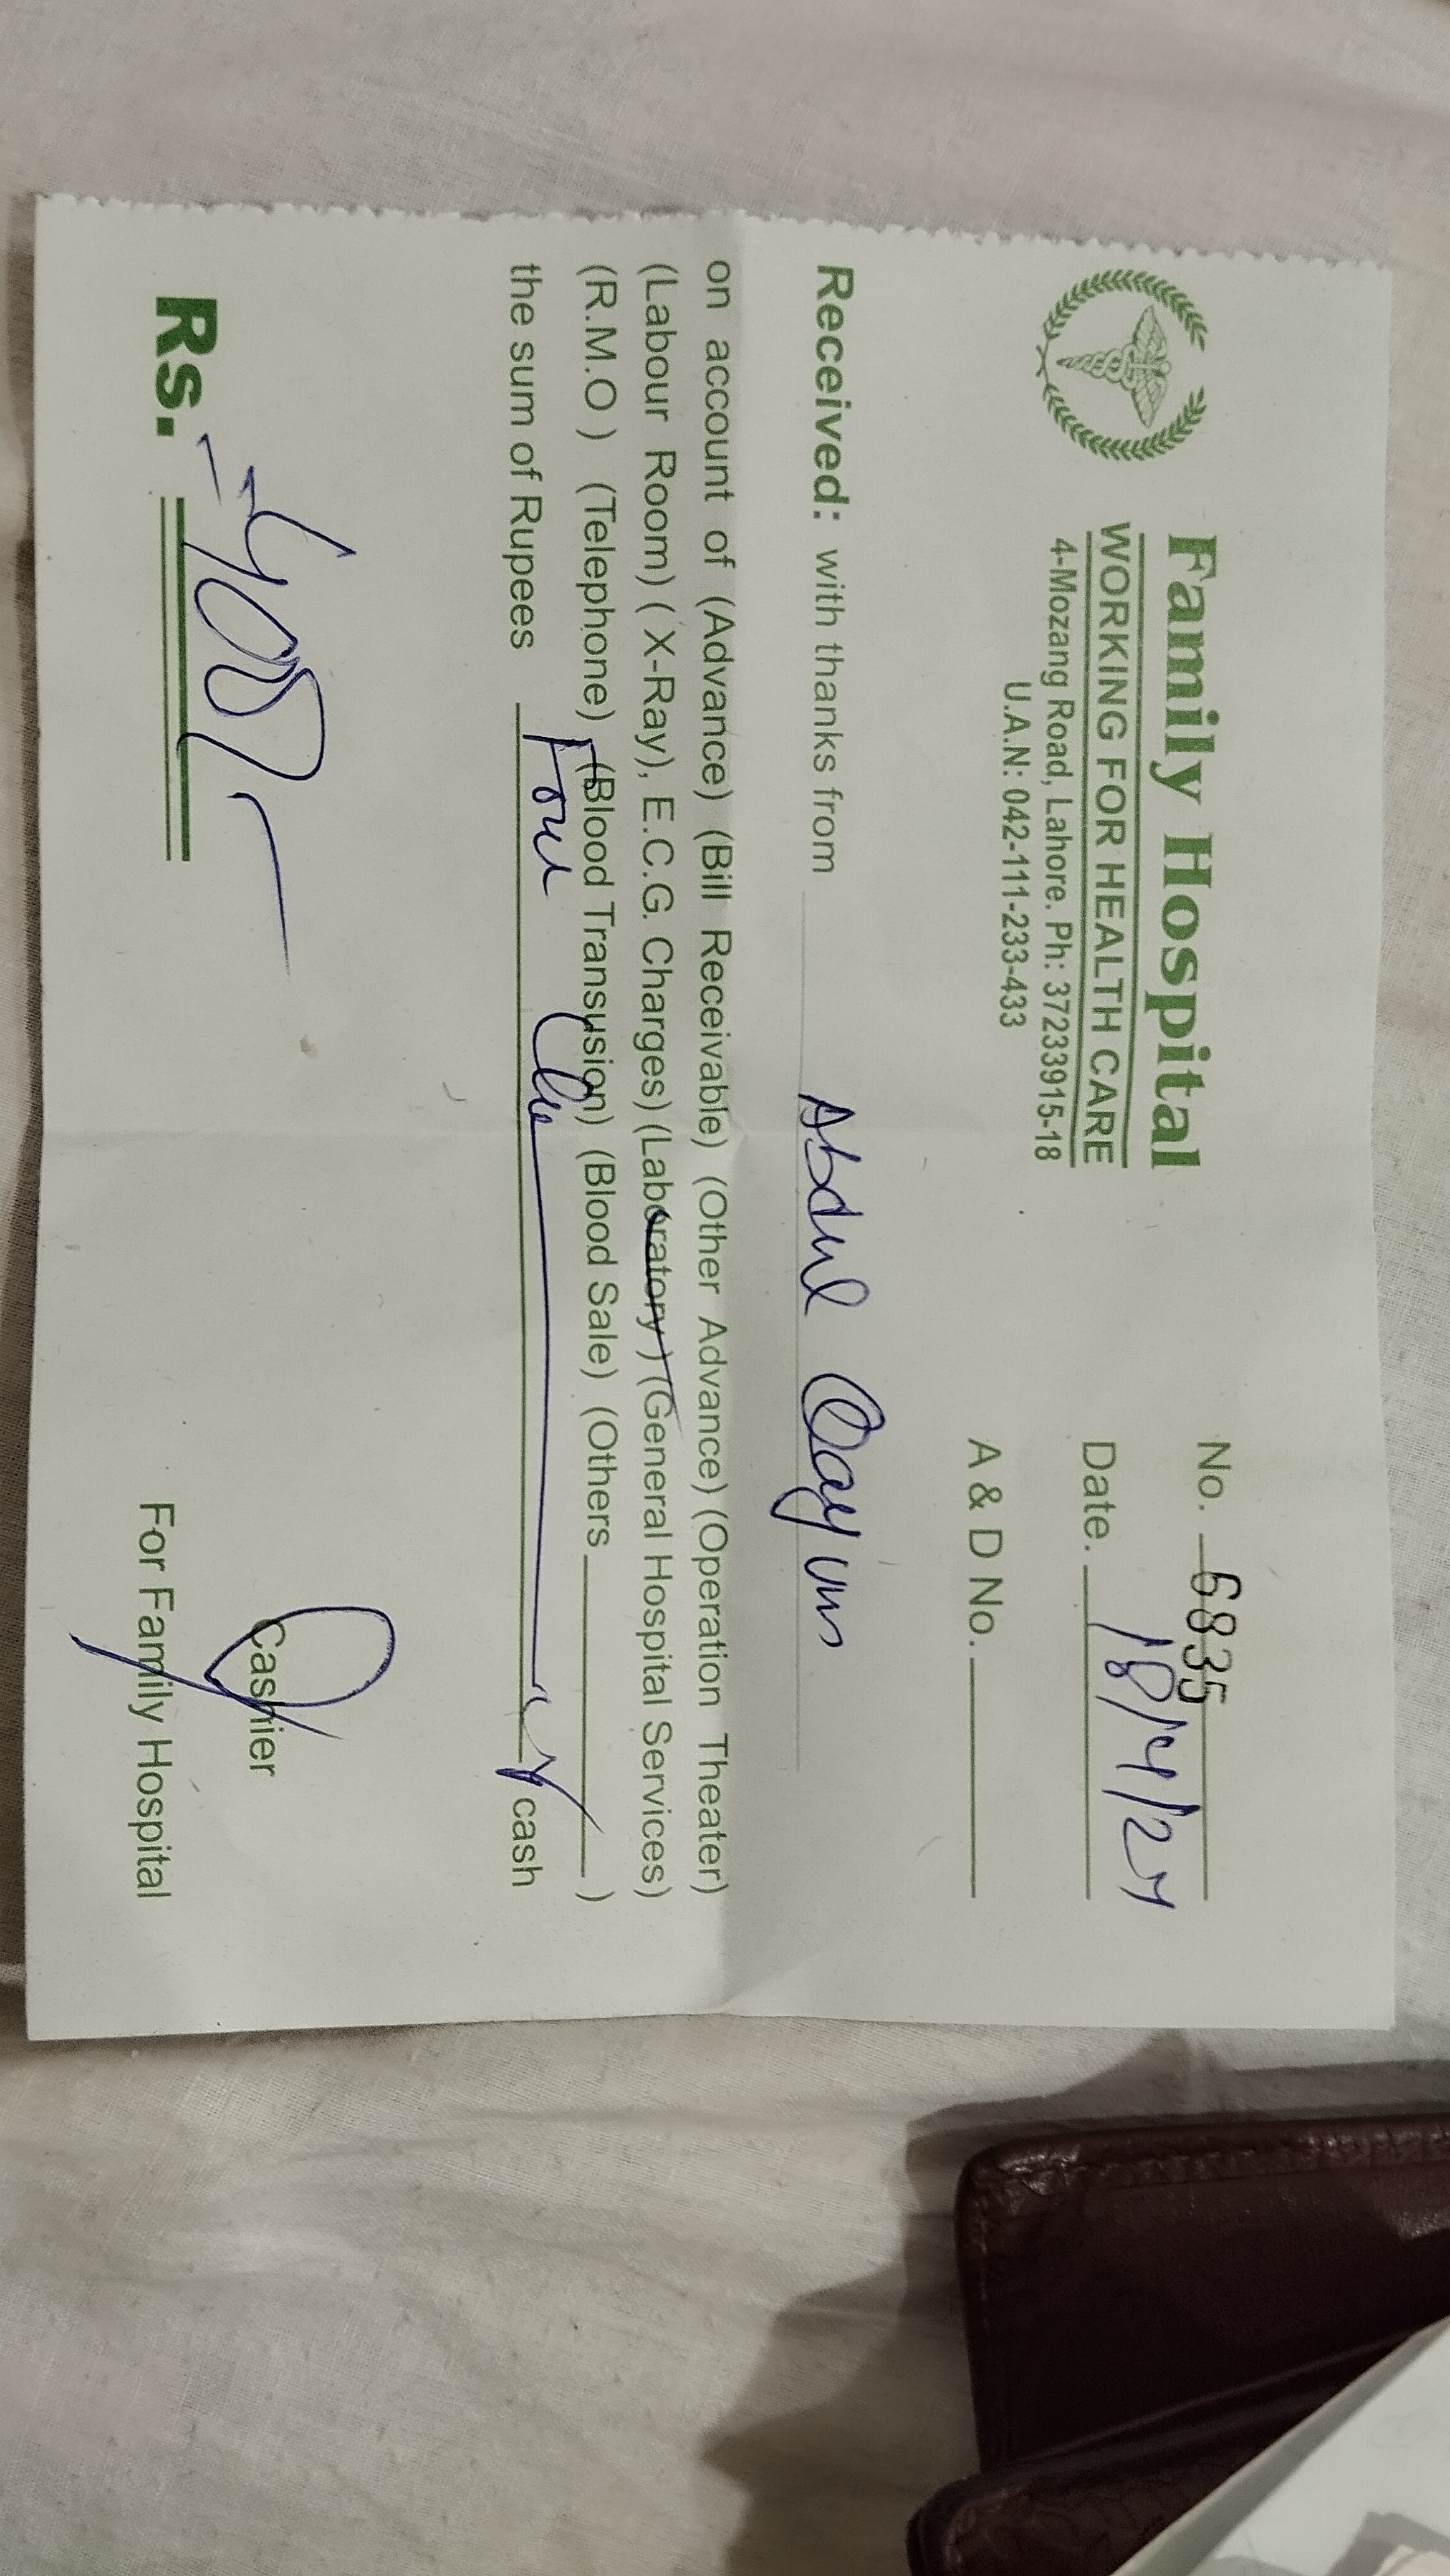 Family Hospital
WORKING FOR HEALTH CARE
4-Mozang Road, Lahore. Ph: 37233915-18
U.A.N: 042-111-233-433
No. 6835
Date. 18/4/24
A & D No.
Received: with thanks from Abdul Qayum
on account of (Advance) (Bill Receivable) (Other Advance) (Operation Theater)
(Labour Room) ( X-Ray), E.C.G. Charges) (Laboratory ) (General Hospital Services)
(R.M.O ) (Telephone) (Blood Transusion) (Blood Sale) (Others )
the sum of Rupees Four cash
Rs. 400/-
Cashier
For Family Hospital